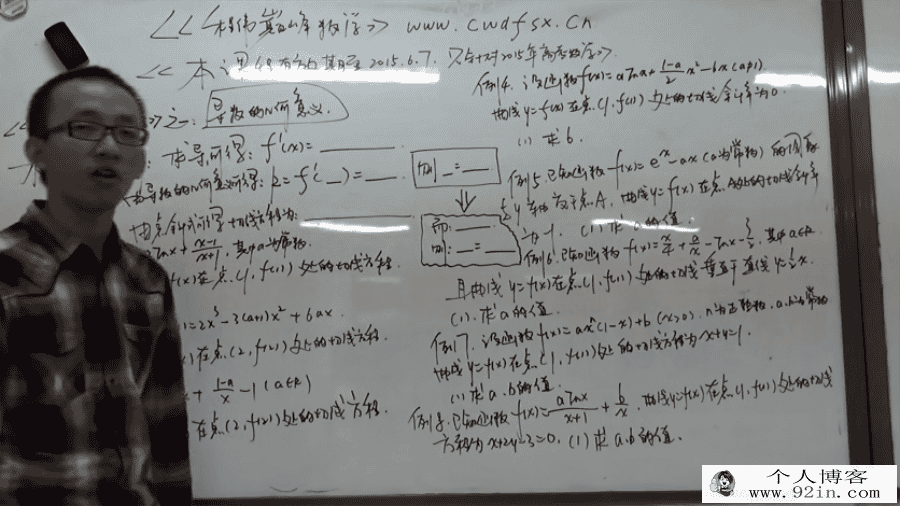 www.cwdfsx.cn
<< 本课 有效期至 2015.6.7. 只针对2015年高考数学>>
导数的几何意义.
求导可得: f'(x)=
由导数的几何意义可得: k=f'(_)=
则 _=_
由点斜式可得切线方程为:
而:
则: _=_
lnx+\frac{x-1}{x+1}, 其中a为常数.
f(x)在点(1,f(1))处的切线方程
=2x³-3(a+1)x²+6ax
在点(2,f(2))处的切线方程.
+\frac{1-a}{x}-1 (a∈R)
在点(2,f(2))处的切线方程.
例4. 设函数f(x)=alnx+\frac{1-a}{2}x²-bx(a≠1).
曲线y=f(x)在点(1,f(1))处的切线斜率为0.
(1) 求b.
例5. 已知函数f(x)=eˣ-ax(a为常数)的图象
与y轴交于点A, 曲线y=f(x)在点A处的切线斜率
为-1. (1) 求a的值.
例6. 已知函数f(x)=\frac{x}{4}+\frac{a}{x}-lnx-\frac{3}{2}, 其中a∈R.
且曲线y=f(x)在点(1,f(1))处的切线垂直于直线y=\frac{1}{2}x.
(1). 求a的值.
例7. 设函数f(x)=axⁿ(1-x)+b(x>0), n为正整数, a,b为常数
曲线y=f(x)在点(1,f(1))处的切线方程为x+y=1.
(1) 求a.b的值.
例8. 已知函数f(x)=\frac{alnx}{x+1}+\frac{b}{x}, 曲线y=f(x)在点(1,f(1))处的切线
方程为x+2y-3=0. (1) 求a.b的值.
个人博客
www.92in.com